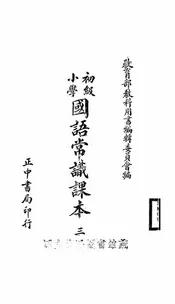 教育部教科用書編輯委員會編
初級
小學
國語常識課本 三
正中書局印行